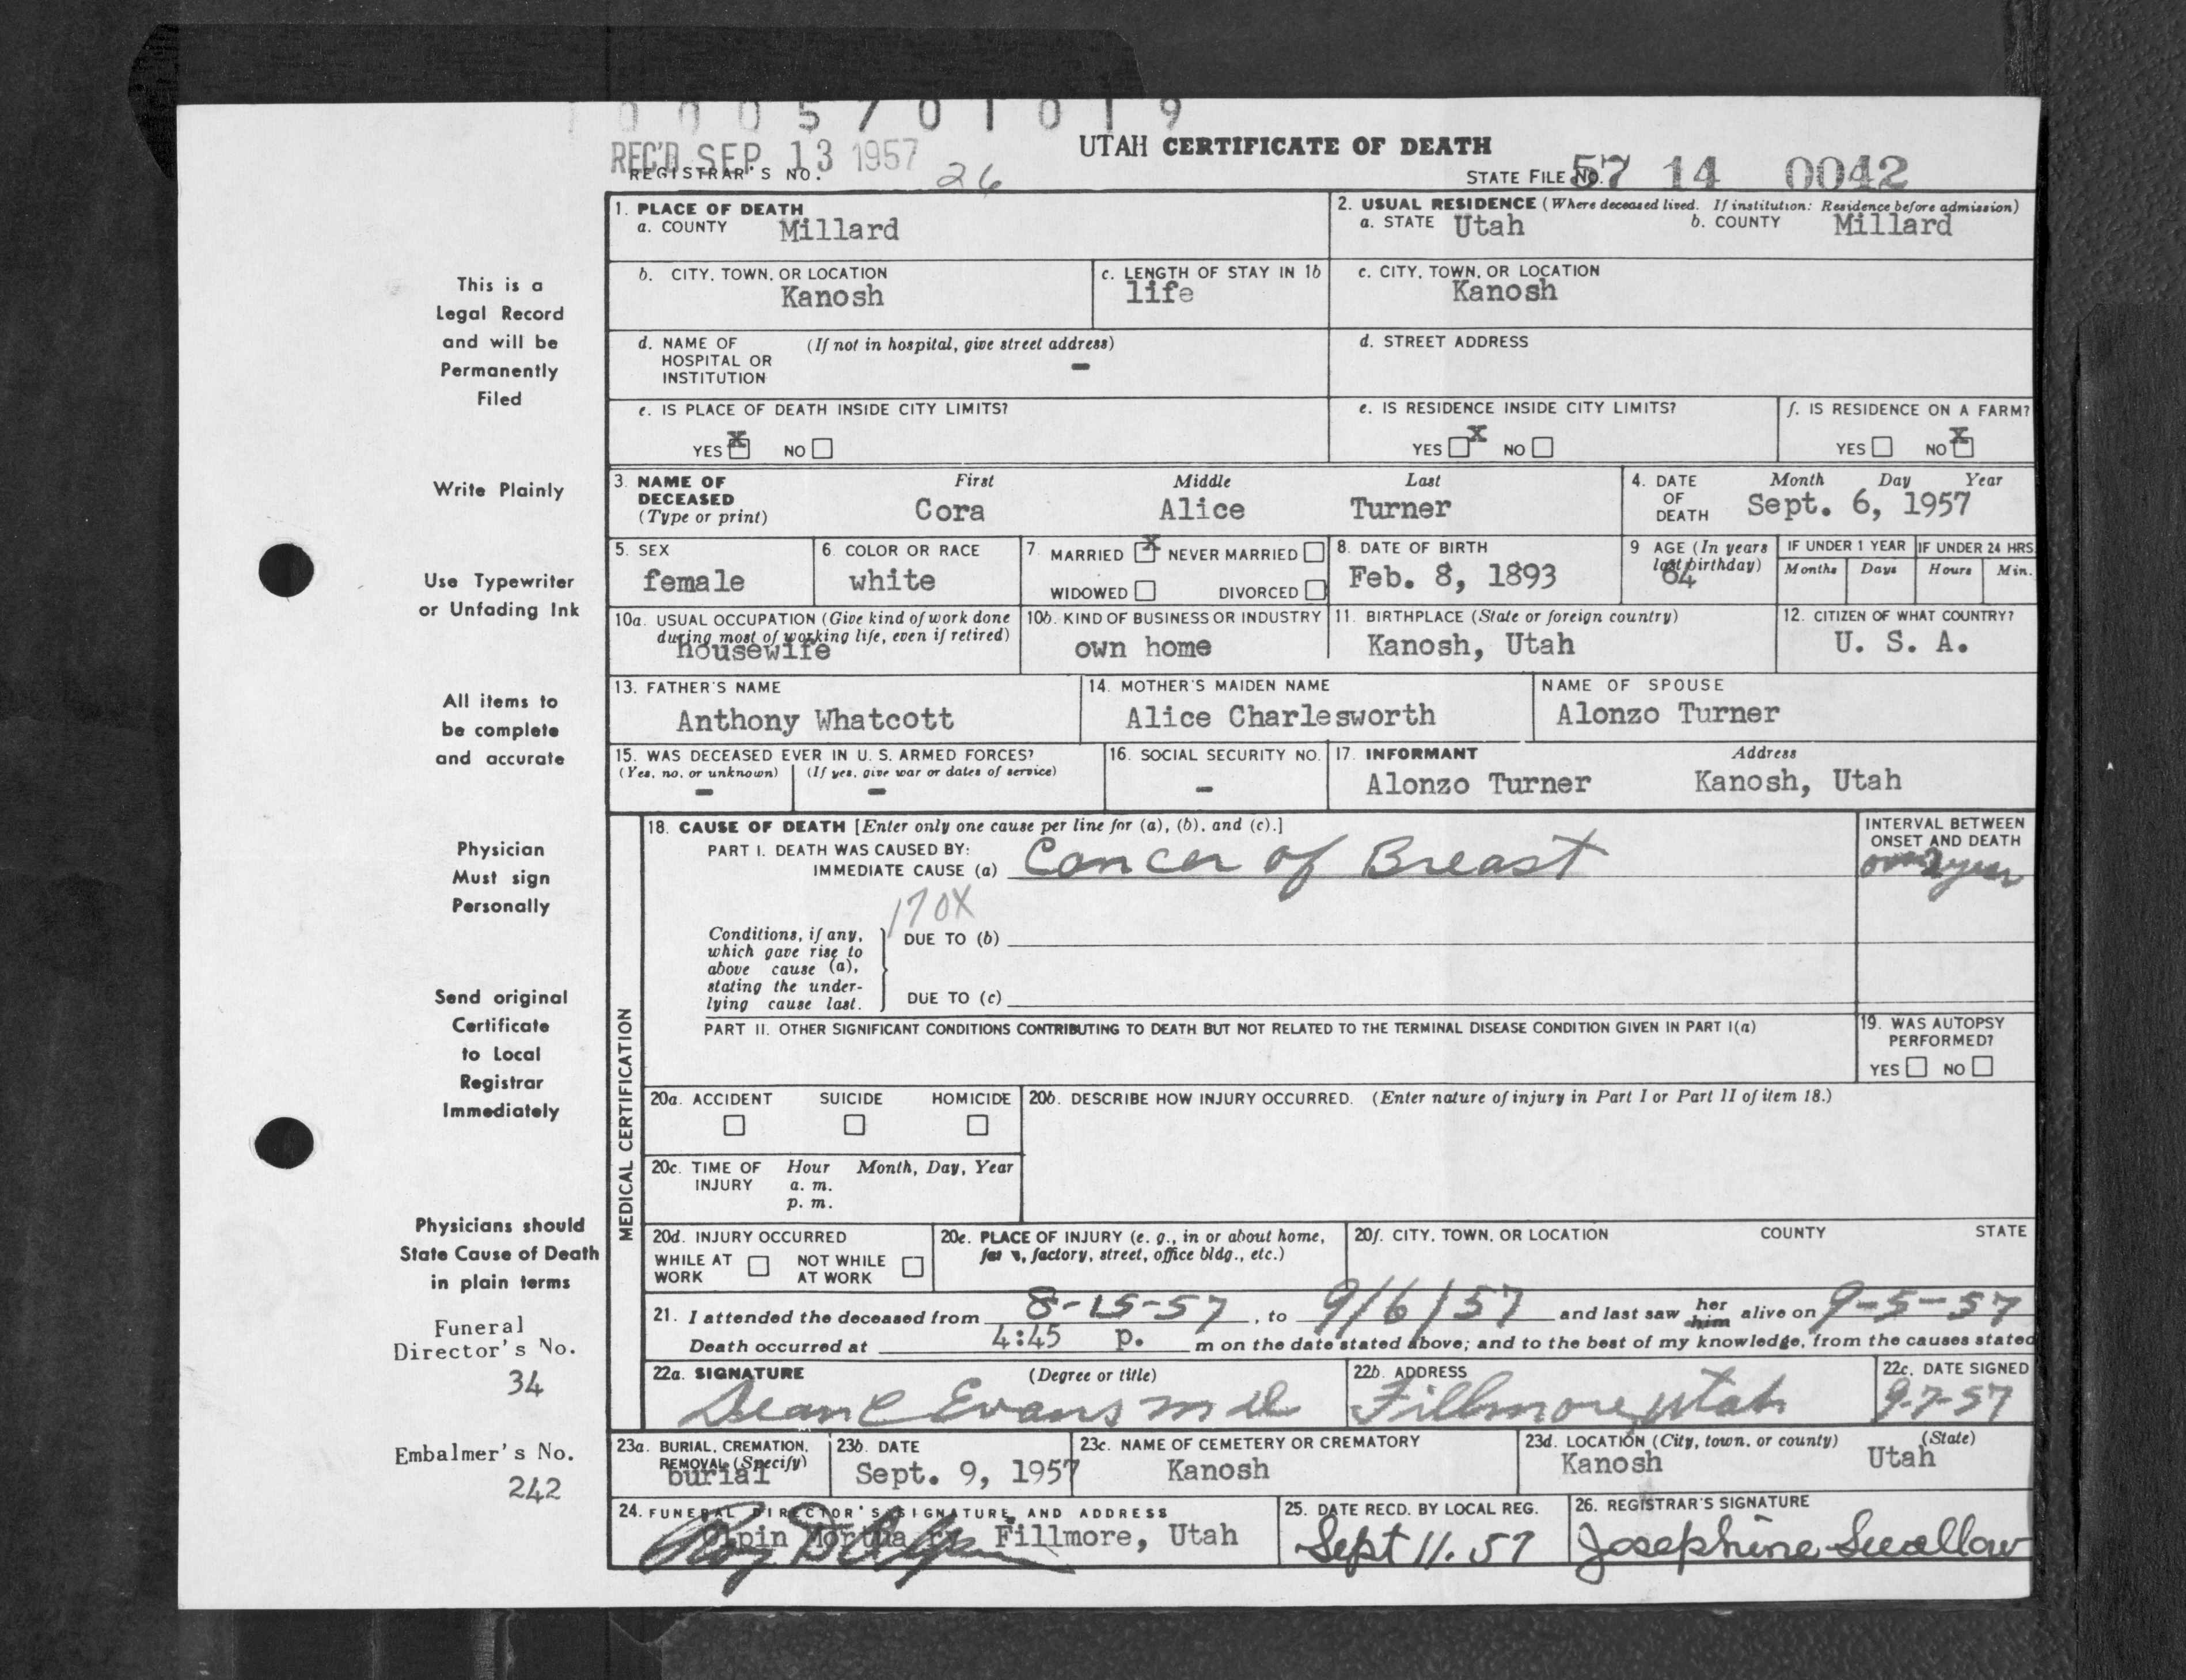 0 0 0 5 7 0 1 0 1 9
REC'D SEP 13 1957
UTAH CERTIFICATE OF DEATH
REGISTRAR'S NO. 26
STATE FILE NO. 57 14 0042
This is a
Legal Record
and will be
Permanently
Filed
Write Plainly
Use Typewriter
or Unfading Ink
All items to
be complete
and accurate
Physician
Must sign
Personally
Send original
Certificate
to Local
Registrar
Immediately
Physicians should
State Cause of Death
in plain terms
Funeral
Director's No.
34
Embalmer's No.
242
1. PLACE OF DEATH
a. COUNTY Millard
2. USUAL RESIDENCE (Where deceased lived. If institution: Residence before admission)
a. STATE Utah b. COUNTY Millard
b. CITY, TOWN, OR LOCATION
Kanosh
c. LENGTH OF STAY IN 1b
life
c. CITY, TOWN, OR LOCATION
Kanosh
d. NAME OF (If not in hospital, give street address)
HOSPITAL OR
INSTITUTION -
d. STREET ADDRESS
e. IS PLACE OF DEATH INSIDE CITY LIMITS?
YES X NO
e. IS RESIDENCE INSIDE CITY LIMITS?
YES X NO
f. IS RESIDENCE ON A FARM?
YES NO X
3. NAME OF DECEASED
(Type or print)
First Middle Last
Cora Alice Turner
4. DATE OF DEATH
Month Day Year
Sept. 6, 1957
5. SEX
female
6. COLOR OR RACE
white
7. MARRIED X NEVER MARRIED
WIDOWED DIVORCED
8. DATE OF BIRTH
Feb. 8, 1893
9 AGE (In years
last birthday)
64
IF UNDER 1 YEAR
Months Days
IF UNDER 24 HRS.
Hours Min.
10a. USUAL OCCUPATION (Give kind of work done
during most of working life, even if retired)
housewife
10b. KIND OF BUSINESS OR INDUSTRY
own home
11. BIRTHPLACE (State or foreign country)
Kanosh, Utah
12. CITIZEN OF WHAT COUNTRY?
U. S. A.
13. FATHER'S NAME
Anthony Whatcott
14. MOTHER'S MAIDEN NAME
Alice Charlesworth
NAME OF SPOUSE
Alonzo Turner
15. WAS DECEASED EVER IN U. S. ARMED FORCES?
(Yes, no, or unknown) (If yes, give war or dates of service)
- -
16. SOCIAL SECURITY NO.
-
17. INFORMANT Address
Alonzo Turner Kanosh, Utah
MEDICAL CERTIFICATION
18. CAUSE OF DEATH [Enter only one cause per line for (a), (b), and (c).]
PART I. DEATH WAS CAUSED BY:
IMMEDIATE CAUSE (a) Cancer of Breast
INTERVAL BETWEEN
ONSET AND DEATH
170X
Conditions, if any,
which gave rise to
above cause (a),
stating the under-
lying cause last.
DUE TO (b)
DUE TO (c)
PART II. OTHER SIGNIFICANT CONDITIONS CONTRIBUTING TO DEATH BUT NOT RELATED TO THE TERMINAL DISEASE CONDITION GIVEN IN PART I(a)
19. WAS AUTOPSY
PERFORMED?
YES NO
20a. ACCIDENT SUICIDE HOMICIDE
20b. DESCRIBE HOW INJURY OCCURRED. (Enter nature of injury in Part I or Part II of item 18.)
20c. TIME OF INJURY Hour Month, Day, Year
a. m.
p. m.
20d. INJURY OCCURRED
WHILE AT WORK NOT WHILE AT WORK
20e. PLACE OF INJURY (e. g., in or about home,
factory, street, office bldg., etc.)
20f. CITY, TOWN, OR LOCATION COUNTY STATE
21. I attended the deceased from 8-15-57, to 9/6/57 and last saw her him alive on 9-5-57
Death occurred at 4:45 p. m on the date stated above; and to the best of my knowledge, from the causes stated
22a. SIGNATURE (Degree or title)
Dean C Evans M D
22b. ADDRESS
Fillmore, Utah
22c. DATE SIGNED
9-7-57
23a. BURIAL, CREMATION,
REMOVAL (Specify)
burial
23b. DATE
Sept. 9, 1957
23c. NAME OF CEMETERY OR CREMATORY
Kanosh
23d. LOCATION (City, town, or county) (State)
Kanosh Utah
24. FUNERAL DIRECTOR'S SIGNATURE AND ADDRESS
Olpin Mortuary Fillmore, Utah
25. DATE RECD. BY LOCAL REG.
Sept 11. 57
26. REGISTRAR'S SIGNATURE
Josephine Swallow